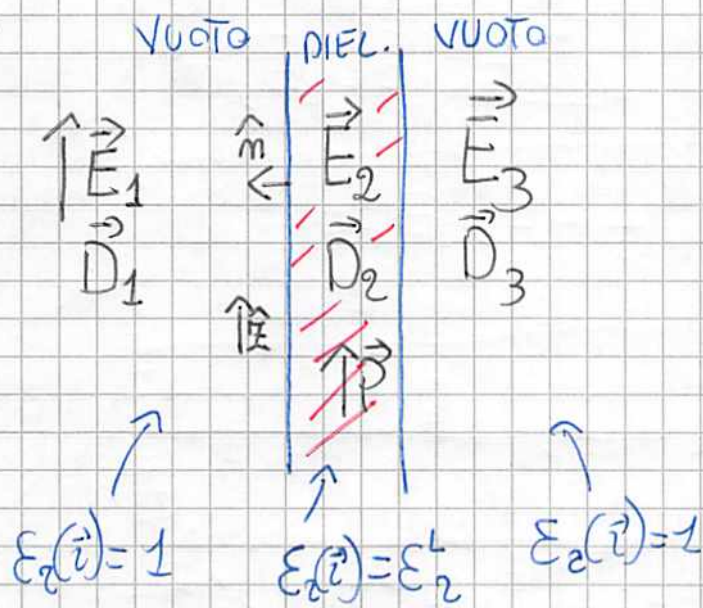 VUOTO DIEL. VUOTO
E⃗₁ n̂ E⃗₂ E⃗₃
D⃗₁ D⃗₂ D⃗₃
ẑ P⃗
εᵣ(r⃗) = 1 εᵣ(r⃗) = εᵣᴸ εᵣ(r⃗) = 1